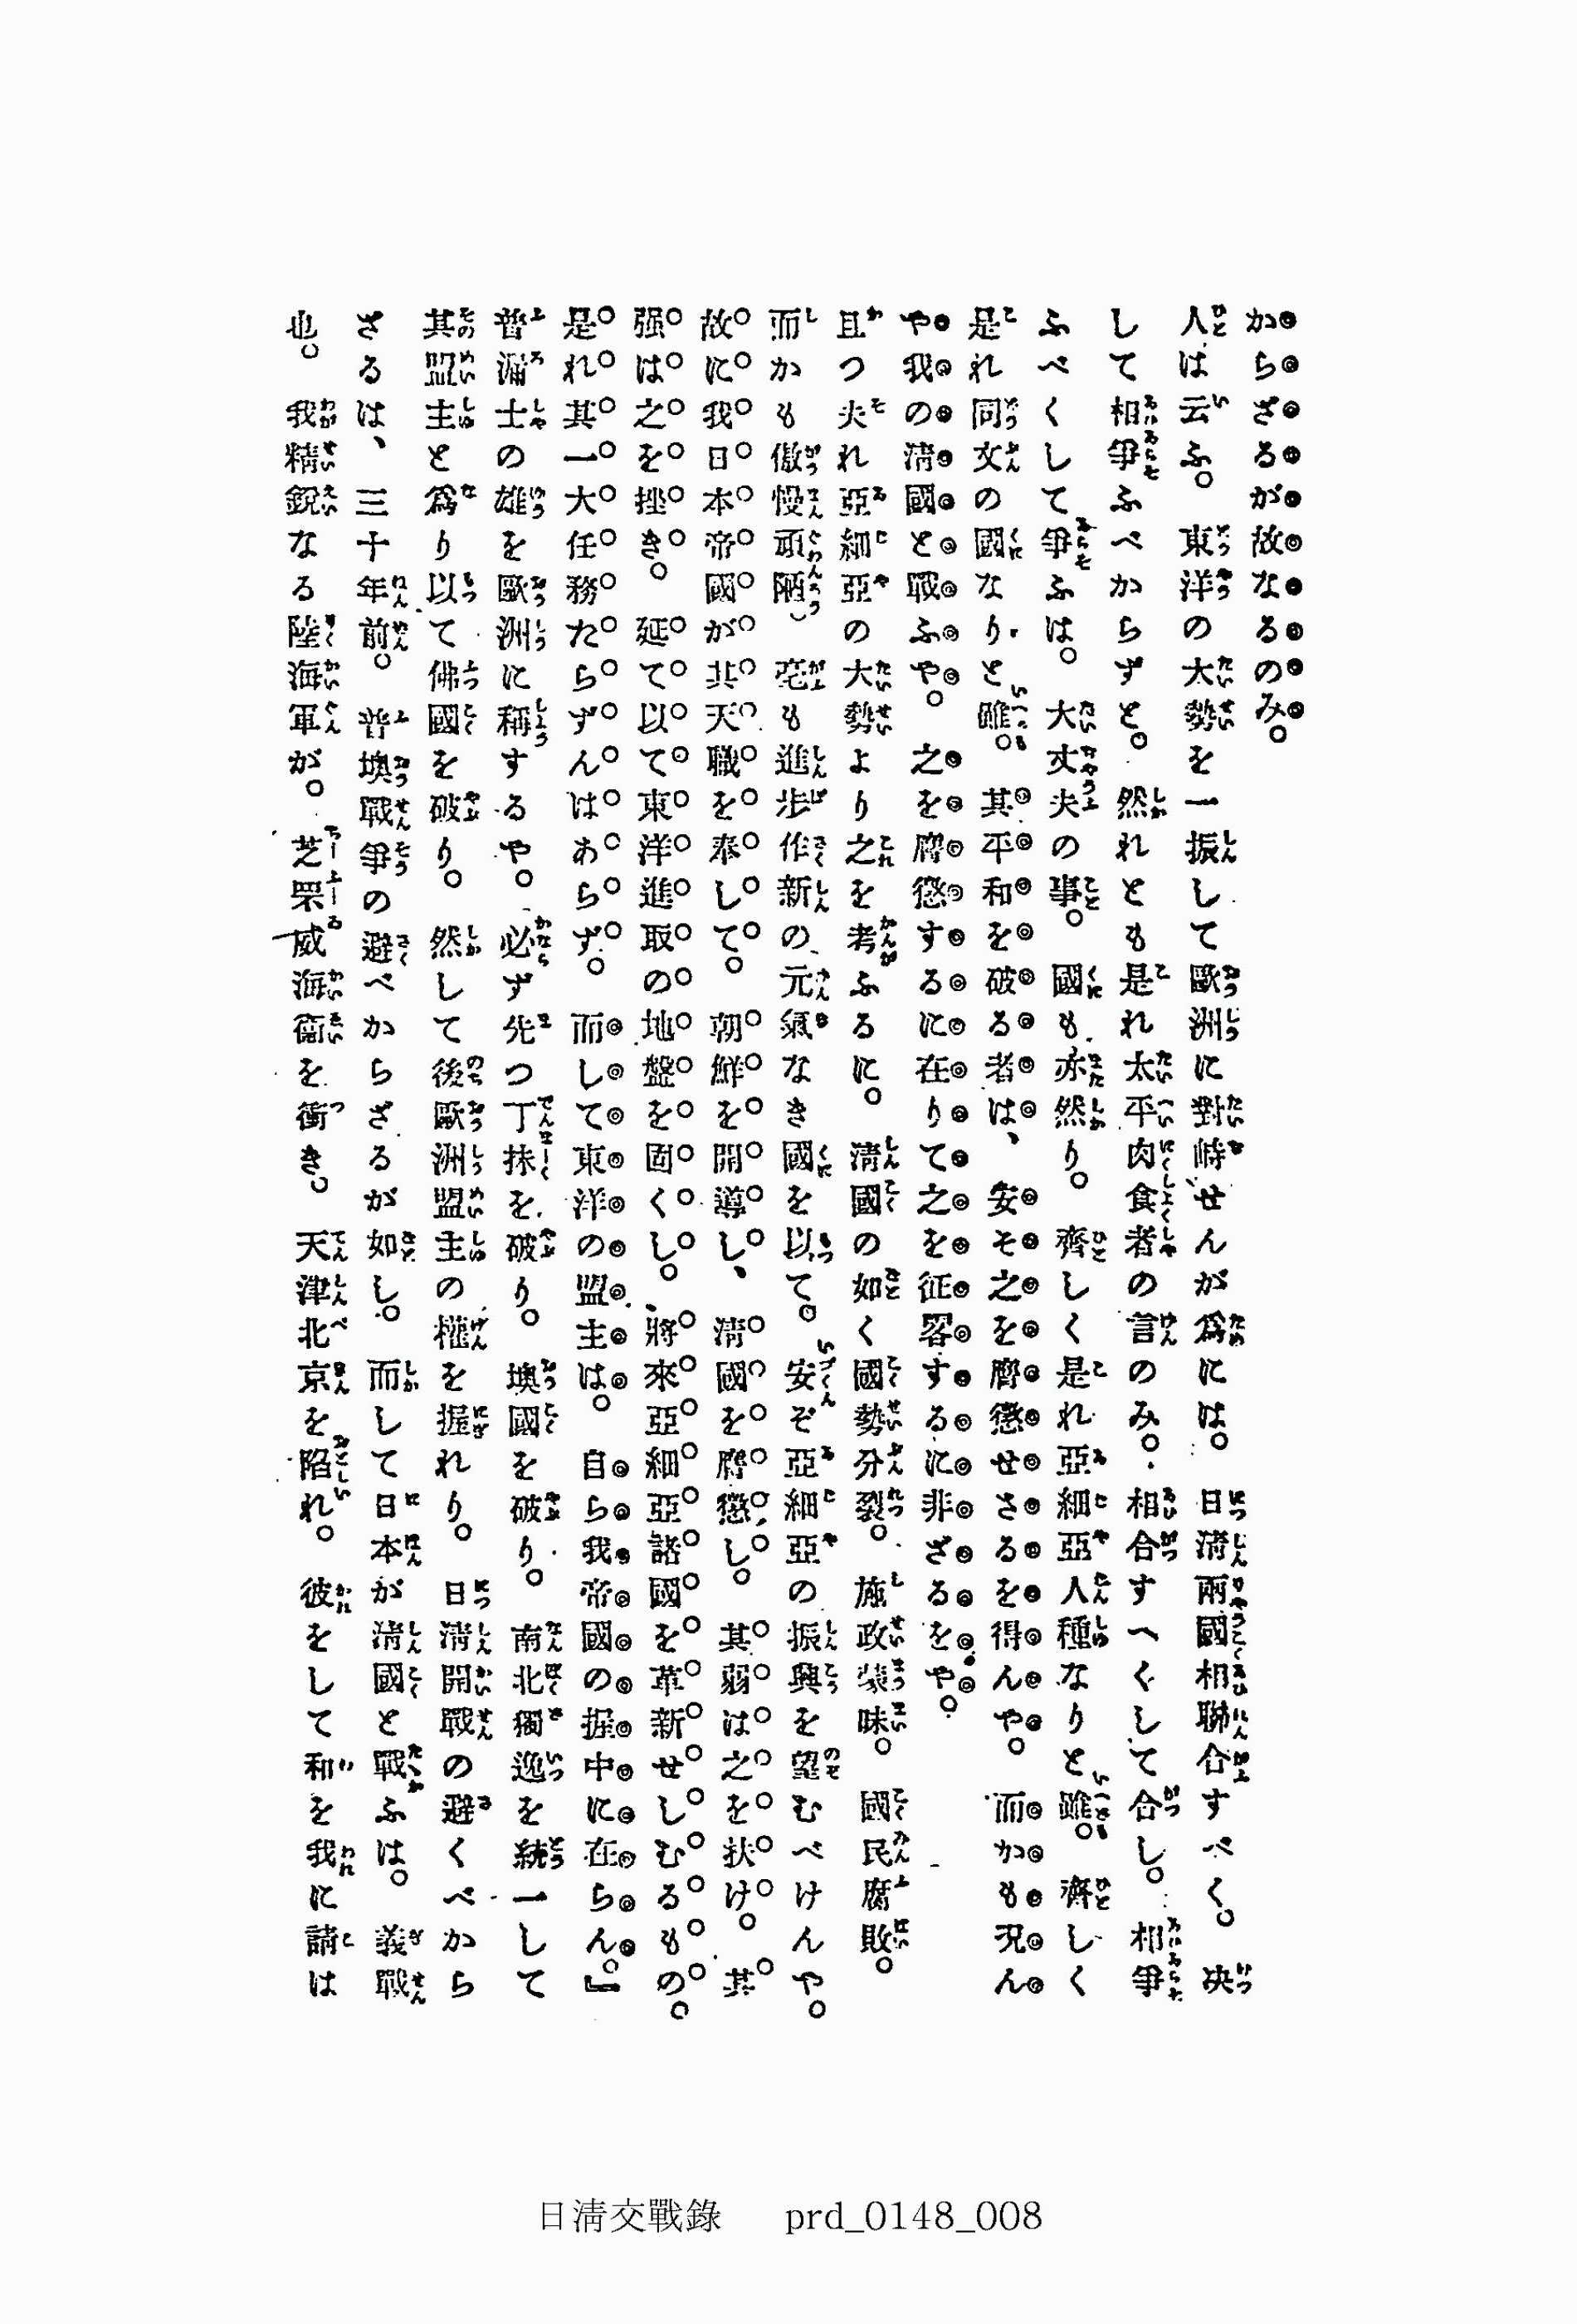 からざるが故なるのみ。
人は云ふ。東洋の大勢を一振して歐洲に對峙せんが爲には。日淸兩國相聯合すべく。决
して相爭ふべからずと。然れとも是れ太平肉食者の言のみ。相合すへくして合し。相爭
ふべくして爭ふは。大丈夫の事。國も亦然り。齊しく是れ亞細亞人種なりと雖。齊しく
是れ同文の國なりと雖。其平和を破る者は、安そ之を膺懲せさるを得んや。而かも况ん
や我の淸國と戰ふや。之を膺懲するに在りて之を征畧するに非ざるをや。
且つ夫れ亞細亞の大勢より之を考ふるに。淸國の如く國勢分裂。施政蒙昧。國民腐敗。
而かも傲慢頑陋、毫も進步作新の元氣なき國を以て。安ぞ亞細亞の振興を望むべけんや。
故に我日本帝國が其天職を奉して。朝鮮を開導し、淸國を膺懲し。其弱は之を扶け。其
强は之を挫き。延て以て東洋進取の地盤を固くし。將來亞細亞諸國を革新せしむるもの。
是れ其一大任務たらずんはあらず。而して東洋の盟主は。自ら我帝國の握中に在らん。』
普漏士の雄を歐洲に稱するや。必ず先つ丁抹を破り。墺國を破り。南北獨逸を統一して
其盟主と爲り以て佛國を破り。然して後歐洲盟主の權を握れり。日淸開戰の避くべから
ざるは、三十年前。普墺戰爭の避べからざるが如し。而して日本が淸國と戰ふは。義戰
也。我精銳なる陸海軍が。芝罘威海衞を衝き。天津北京を陷れ。彼をして和を我に請は
日淸交戰錄 prd_0148_008